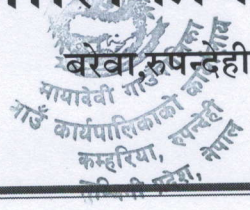 बरेवा,रुपन्देही
मायादेवी गाउँपालिका
गाउँ कार्यपालिकाको कार्यालय
कम्हरिया, रुपन्देही
प्रदेश, नेपाल